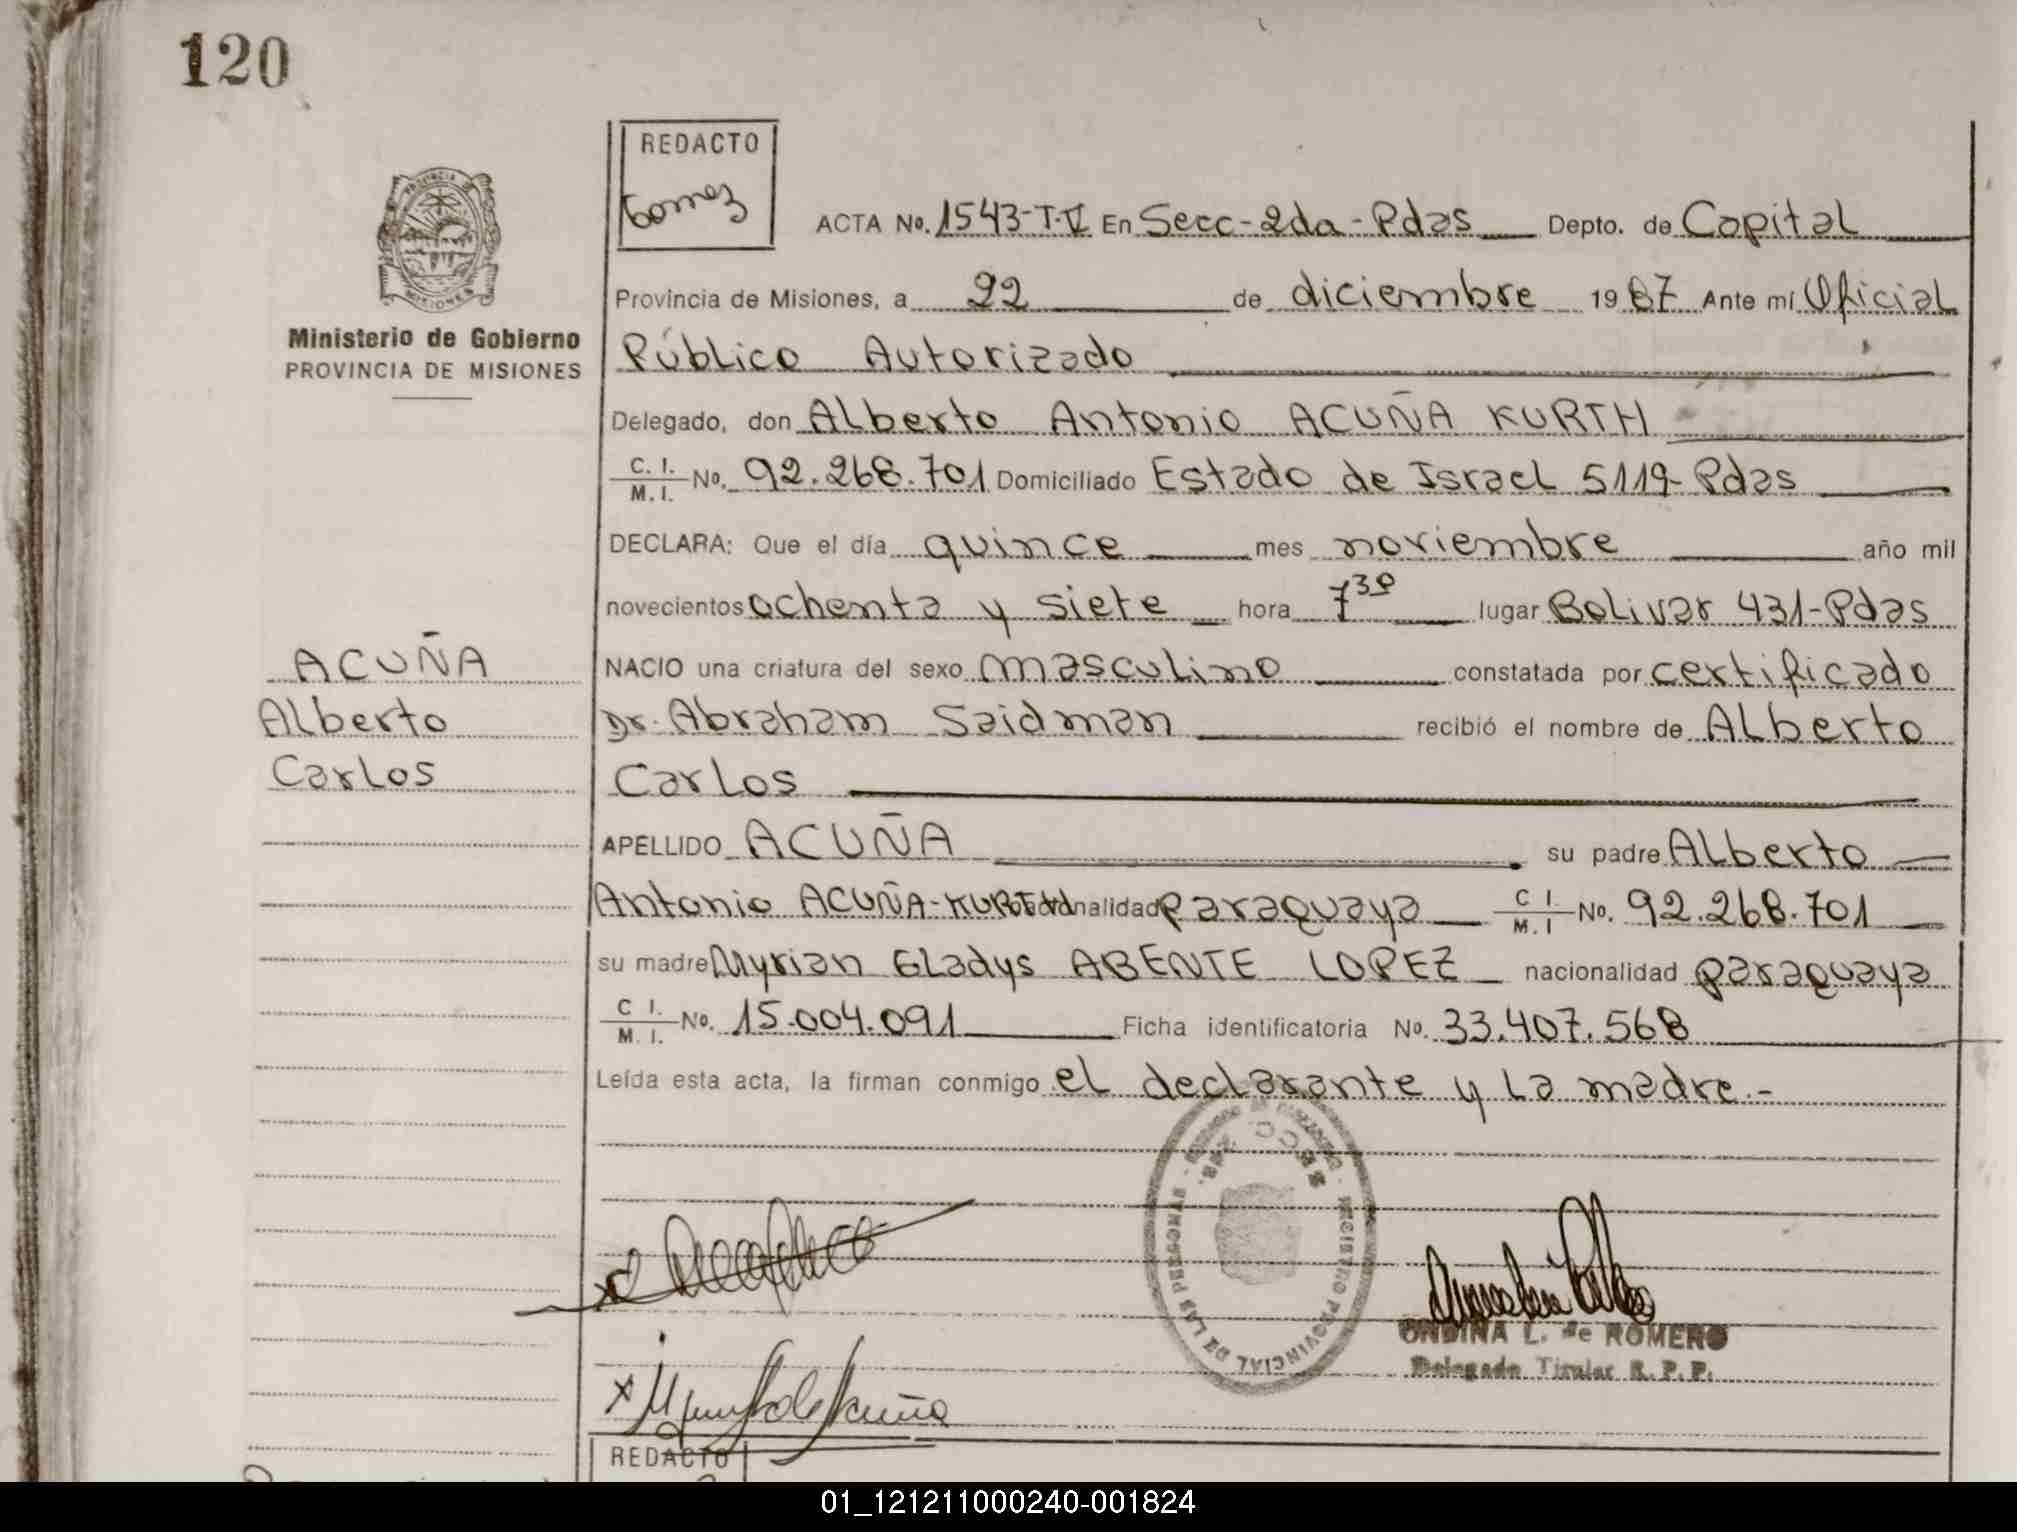 120
REDACTO
Gomez
ACTA No. 1543-T.V En Secc-2da-Pdas Depto. de Capital
Provincia de Misiones, a 22 de diciembre 1987 Ante mí Oficial
Público Autorizado
PROVINCIA DE
MISIONES
Ministerio de Gobierno
PROVINCIA DE MISIONES
Delegado, don Alberto Antonio ACUÑA KURTH
C. I. / M. I. No. 92.268.701 Domiciliado Estado de Israel 5119-Pdas
DECLARA: Que el día quince mes noviembre año mil
novecientos ochenta y siete hora 7 30 lugar Bolivar 431-Pdas
ACUÑA
Alberto
Carlos
NACIO una criatura del sexo masculino constatada por certificado
Dr. Abraham Saidman recibió el nombre de Alberto
Carlos
APELLIDO ACUÑA su padre Alberto
Antonio ACUÑA-KURTH nacionalidad paraguaya C I. / M. I No. 92.268.701
su madre Myrian Gladys ABENTE LOPEZ nacionalidad paraguaya
C I. / M. I. No. 15.004.091 Ficha identificatoria No. 33.407.568
Leída esta acta, la firman conmigo el declarante y la madre.-
REGISTRO PROVINCIAL DE LAS PERSONAS
SECC. 2da.
x
x
de Acuña
ONDINA L. de ROMERO
Delegado Titular R. P. P.
REDACTO
01_121211000240-001824